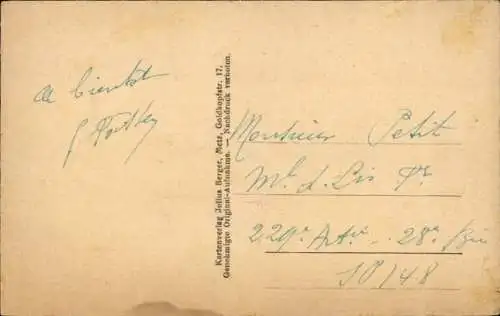 a bientot
Kartenverlag Julius Berger, Metz, Goldkopfstr. 17.
Genehmigte Original-Aufnahme. — Nachdruck verboten.
Monsieur Petit
Ml. d. Lis
229e Art. - 28e
SP 148